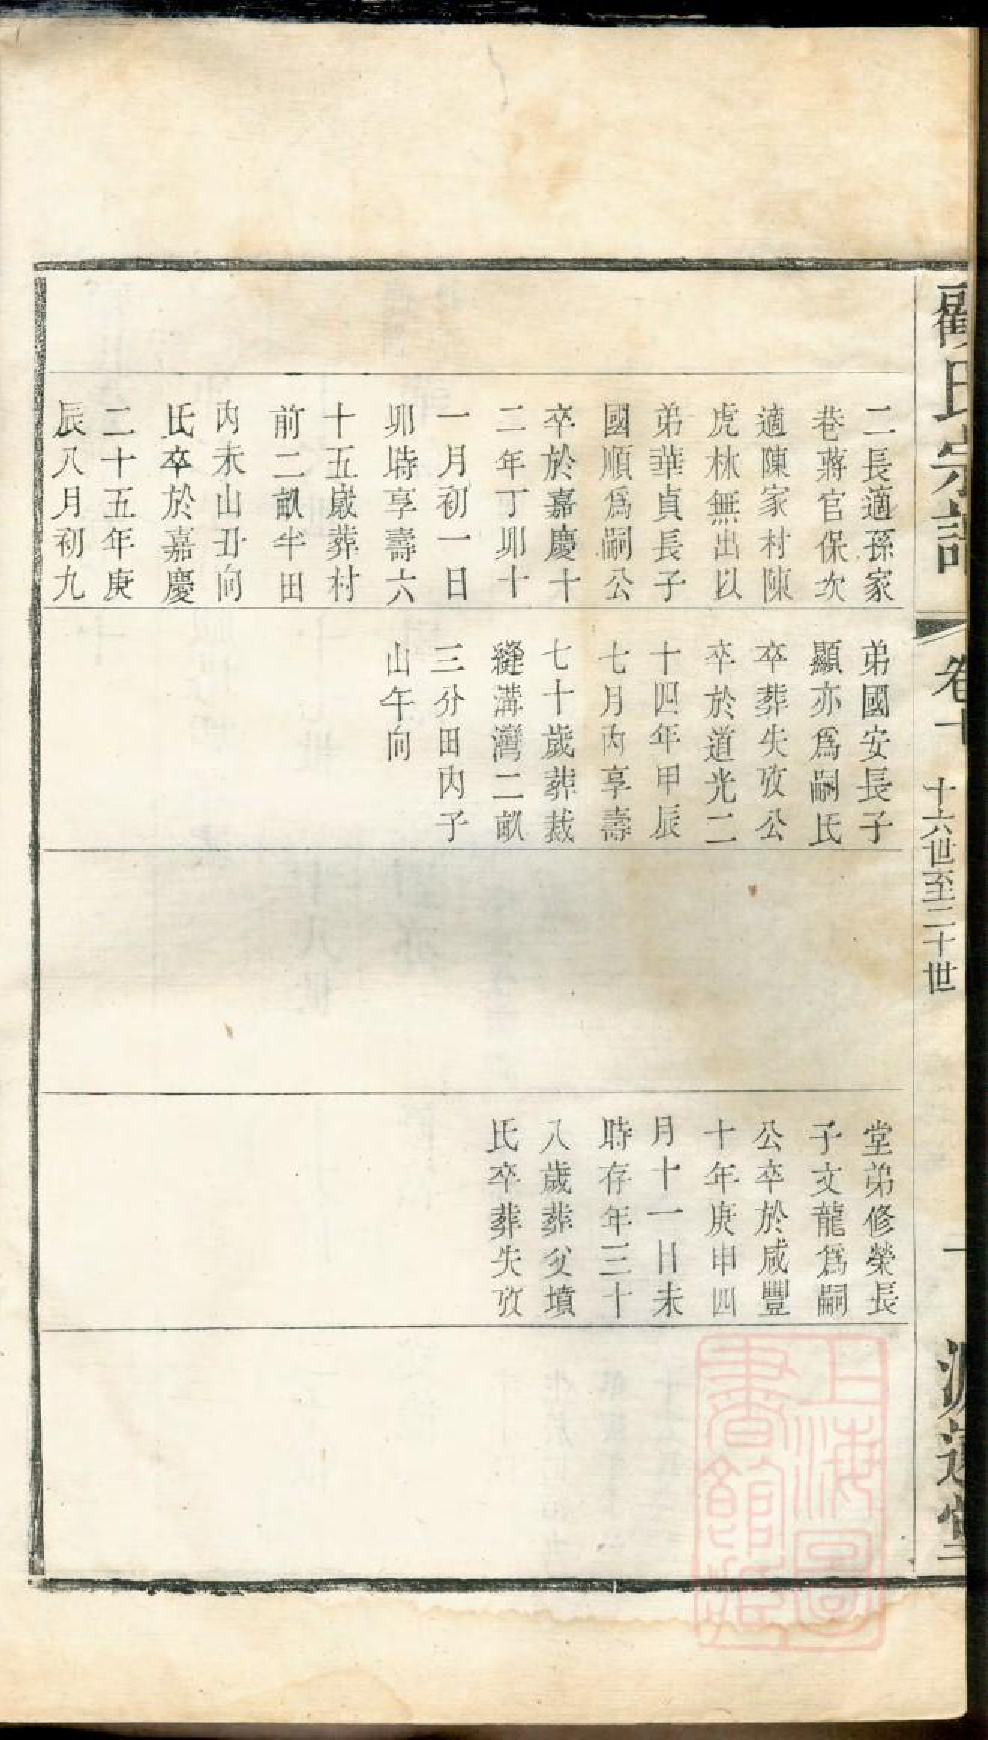 顧氏宗譜
卷十
十六世至二十世
一
源遠堂
二長適孫家
巷蔣官保次
適陳家村陳
虎林無出以
弟華貞長子
國順爲嗣公
卒於嘉慶十
二年丁卯十
一月初一日
卯時享壽六
十五歲葬村
前二畝半田
內未山丑向
氏卒於嘉慶
二十五年庚
辰八月初九
弟國安長子
顯亦爲嗣氏
卒葬失攷公
卒於道光二
十四年甲辰
七月內享壽
七十歲葬裁
縫溝灣二畝
三分田內子
山午向
堂弟修榮長
子文龍爲嗣
公卒於咸豐
十年庚申四
月十一日未
時存年三十
八歲葬父墳
氏卒葬失攷
上海圖
書館藏